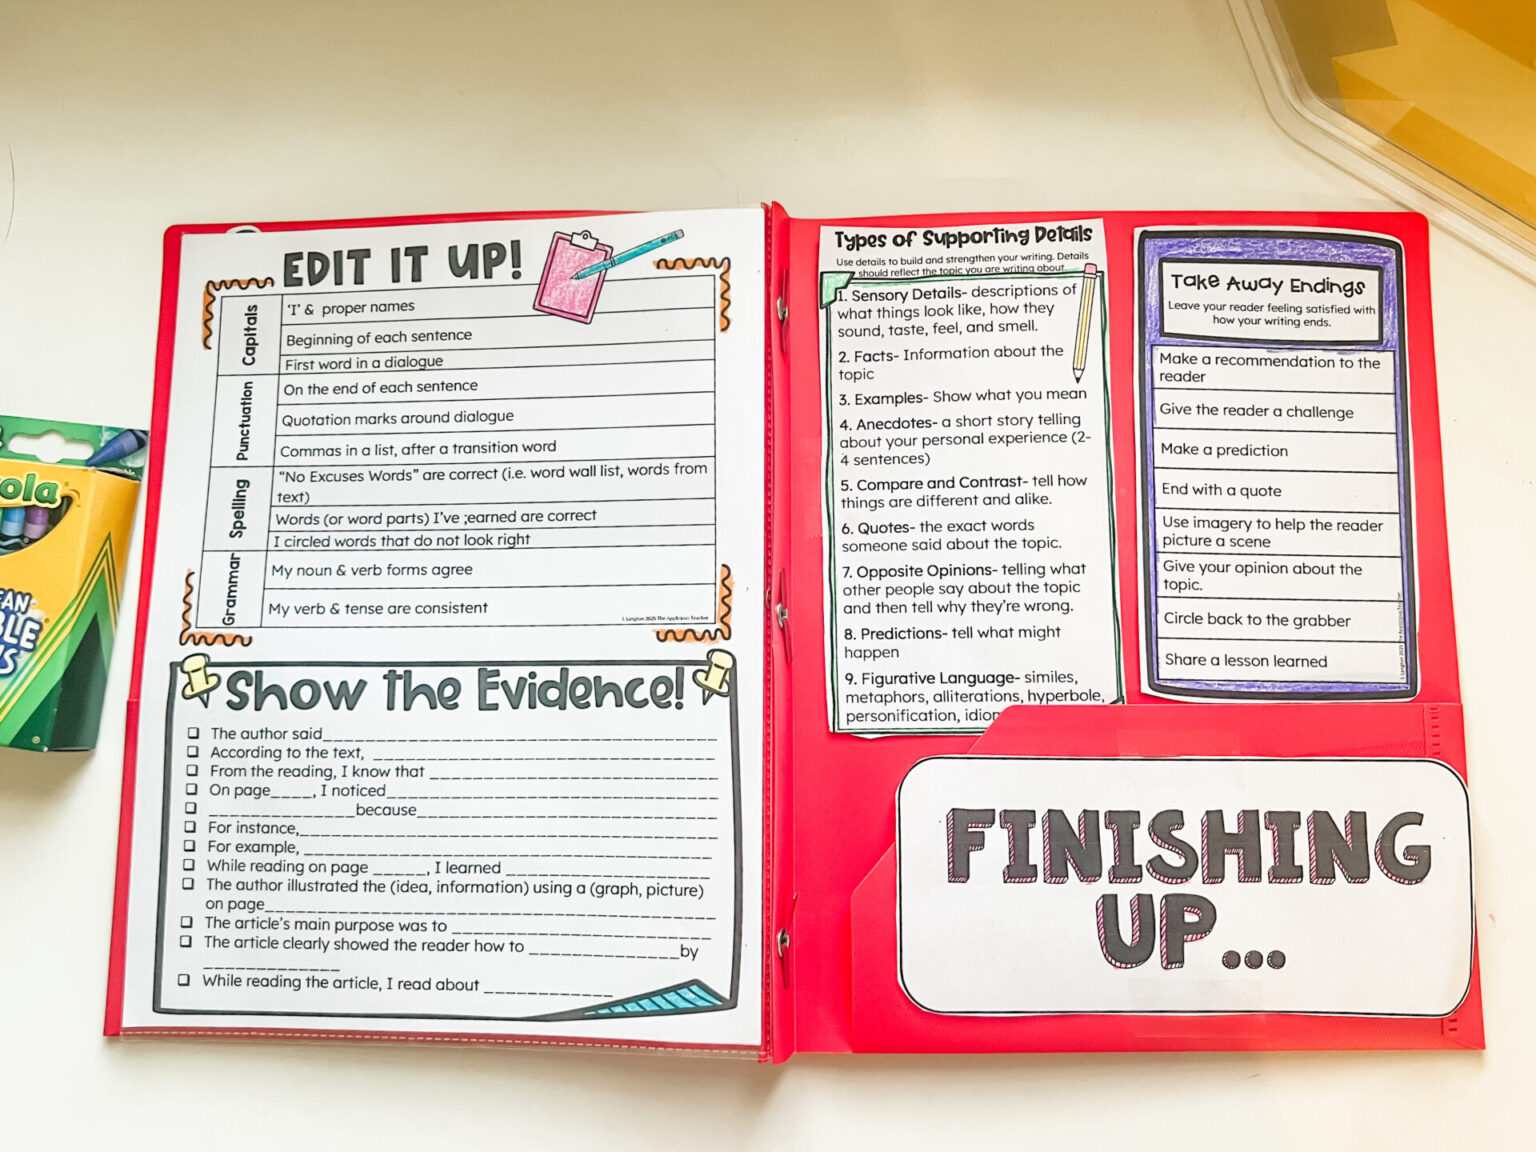 EDIT IT UP!
Capitals
'I' & proper names
Beginning of each sentence
First word in a dialogue
Punctuation
On the end of each sentence
Quotation marks around dialogue
Commas in a list, after a transition word
Spelling
"No Excuses Words" are correct (i.e. word wall list, words from
text)
Words (or word parts) I've ;earned are correct
I circled words that do not look right
Grammar
My noun & verb forms agree
My verb & tense are consistent
Show the Evidence!
The author said____
According to the text, ____
From the reading, I know that ____
On page____, I noticed____
____because____
For instance,____
For example, ____
While reading on page ____, I learned ____
The author illustrated the (idea, information) using a (graph, picture)
on page____
The article's main purpose was to ____
The article clearly showed the reader how to ____by
____
While reading the article, I read about ____
Types of Supporting Details
Use details to build and strengthen your writing. Details
should reflect the topic you are writing about.
1. Sensory Details- descriptions of
what things look like, how they
sound, taste, feel, and smell.
2. Facts- Information about the
topic
3. Examples- Show what you mean
4. Anecdotes- a short story telling
about your personal experience (2-
4 sentences)
5. Compare and Contrast- tell how
things are different and alike.
6. Quotes- the exact words
someone said about the topic.
7. Opposite Opinions- telling what
other people say about the topic
and then tell why they're wrong.
8. Predictions- tell what might
happen
9. Figurative Language- similes,
metaphors, alliterations, hyperbole,
personification, idiom
Take Away Endings
Leave your reader feeling satisfied with
how your writing ends.
Make a recommendation to the
reader
Give the reader a challenge
Make a prediction
End with a quote
Use imagery to help the reader
picture a scene
Give your opinion about the
topic.
Circle back to the grabber
Share a lesson learned
FINISHING
UP...
ola